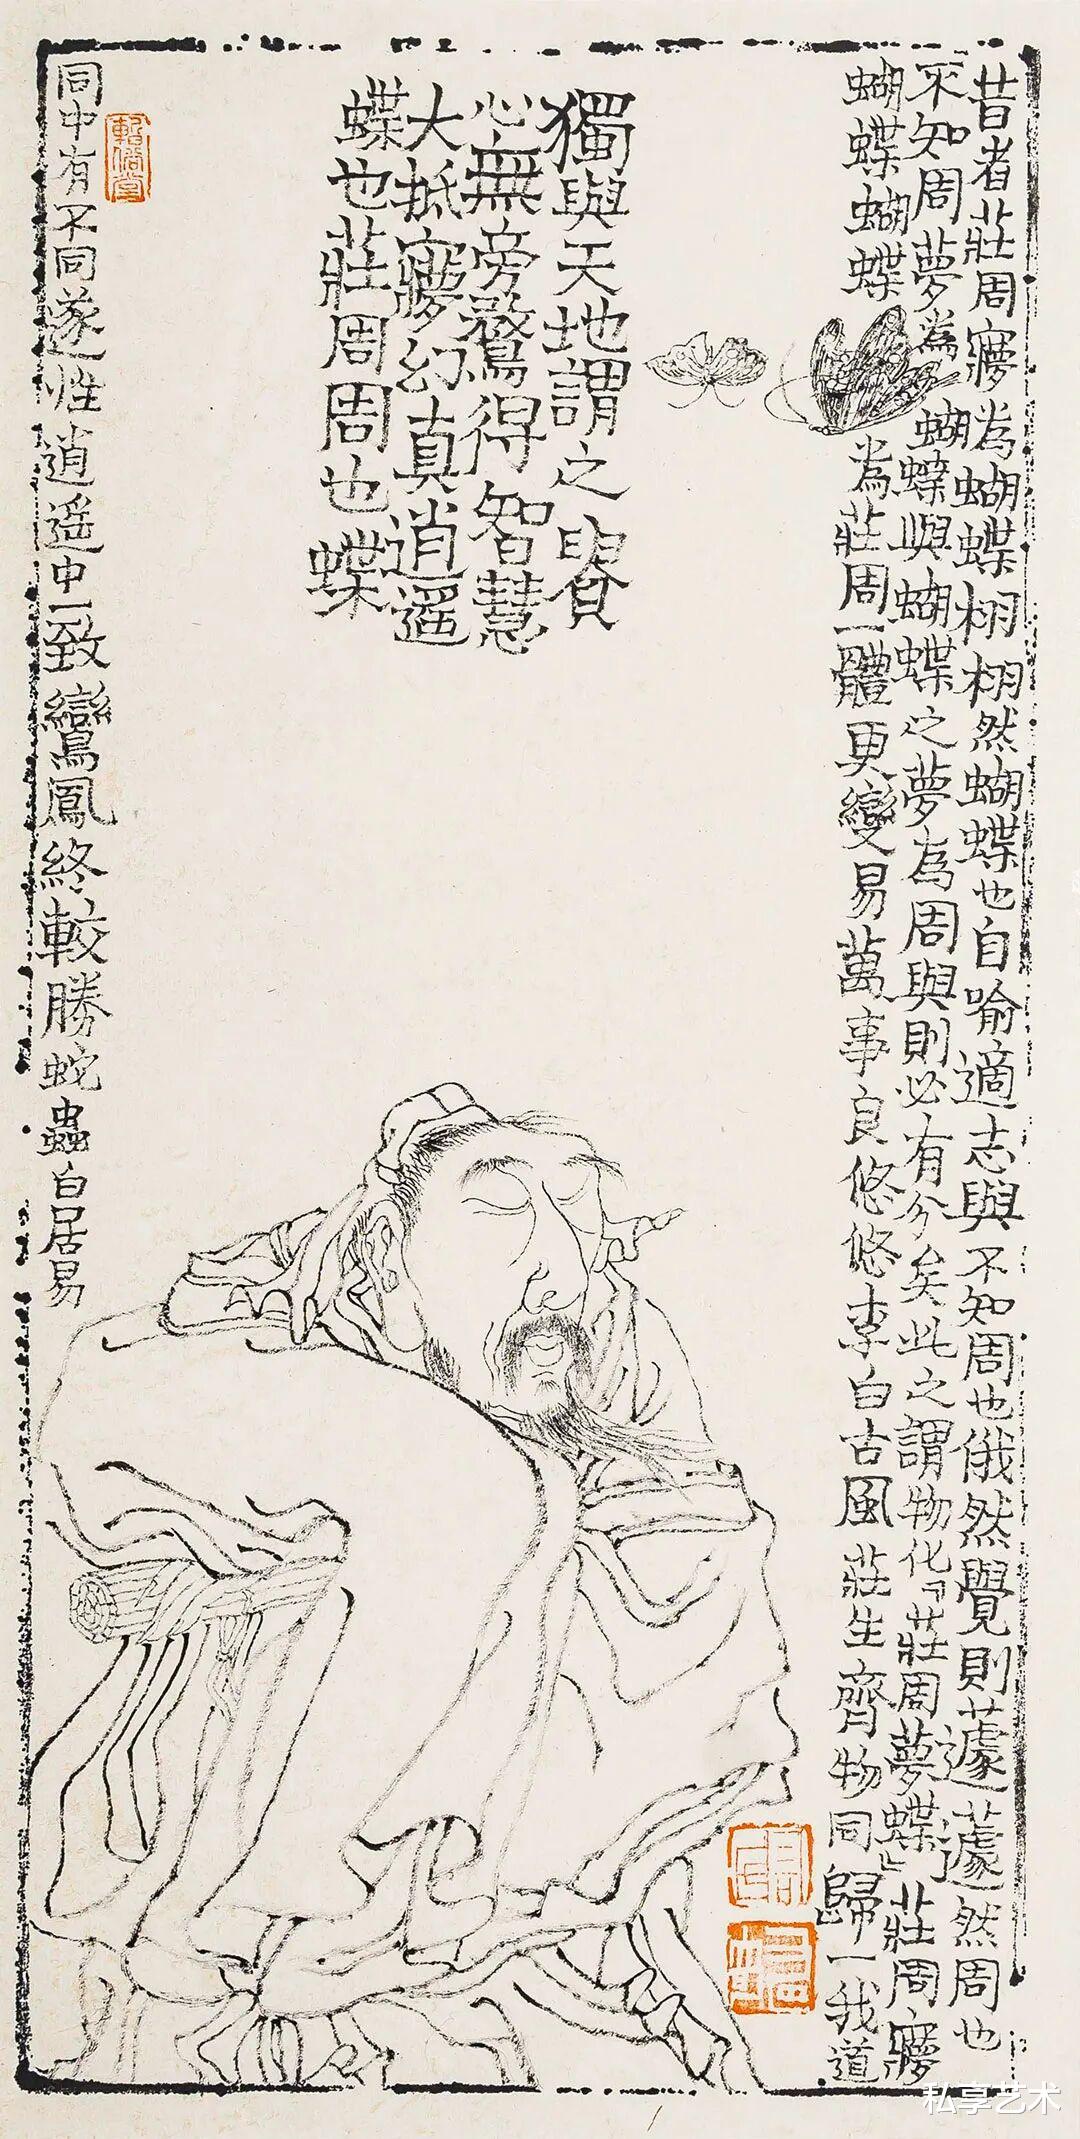 昔者莊周寢為蝴蝶栩栩然蝴蝶也自喻適志與不知周也俄然覺則蘧蘧然周也
不知周夢為蝴蝶與蝴蝶之夢為周與則必有分矣此之謂物化『莊周夢蝶』莊周㝱
蝴蝶蝴蝶為莊周一體更變易萬事良悠悠李白古風莊生齊物同歸一我道
獨與天地謂之
心無旁騖得智慧
大抵㝱幻真逍遥
蝶也莊周周也蝶
同中有不同遂性逍遥中一致鸞鳳終較勝蛇蟲白居易
私享艺术